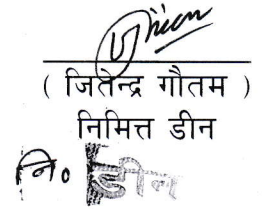 ( जितेन्द्र गौतम )
निमित्त डीन
नि० डीन